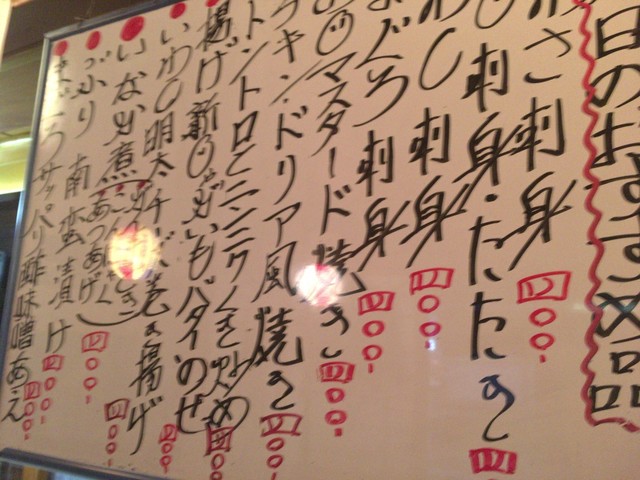 日のおすすめ品
刺身 四〇〇
刺身・たたき 四
わし刺身 四〇〇
まぐろ刺身 四〇〇
マスタード焼き 四〇〇
チキンドリア風焼き 四〇〇
トントロとニンニクくき炒め 四〇〇
揚げ新じゃがいもバターのせ 四〇〇
いわし明太チーズ巻き揚げ 四〇〇
いなか煮 あつあげ 四〇〇
ぶり南蛮漬け 四〇〇
まぐろサッパリ酢味噌あえ 四〇〇